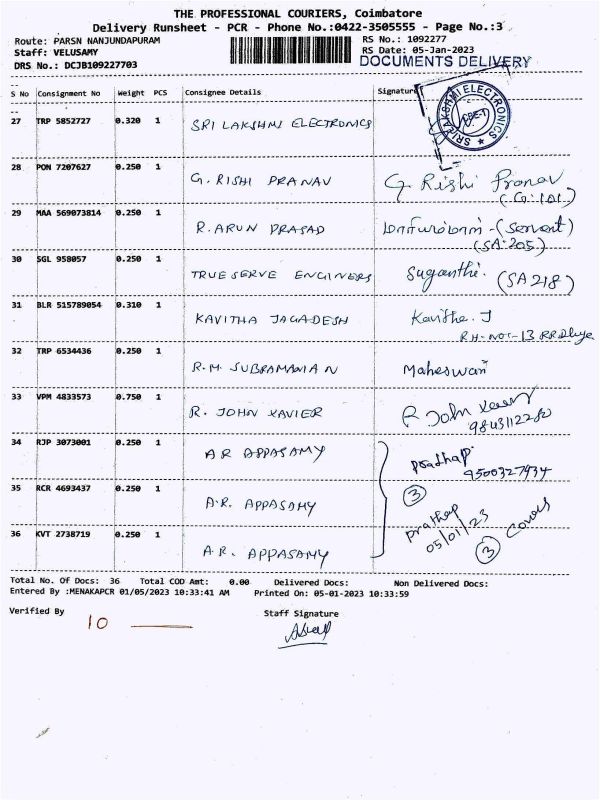 THE PROFESSIONAL COURIERS, Coimbatore
Delivery Runsheet - PCR - Phone No.:0422-3505555 - Page No.:3
Route: PARSN NANJUNDAPURAM RS No.: 1092277
Staff: VELUSAMY RS Date: 05-Jan-2023
DRS No.: DCJB109227703 DOCUMENTS DELIVERY
S No Consignment No Weight PCS Consignee Details Signature
27 TRP 5852727 0.320 1 SRI LAKSHMI ELECTRONICS SRI LAKSHMI ELECTRONICS
28 PON 7207627 0.250 1 G. RISHI PRANAV G Rishi Pranav
(G:101)
29 MAA 569073814 0.250 1 R. ARUN PRASAD (Servant)
(SA-205)
30 SGL 958057 0.250 1 TRUESERVE ENGINERS Suganthi. (SA218)
31 BLR 515789054 0.310 1 KAVITHA JAGADESH Kavitha. J
RH-No:-13
32 TRP 6534436 0.250 1 R.M. SUBRAMANIAN Maheswari
33 VPM 4833573 0.750 1 R. JOHN XAVIER R John Xavier
34 RJP 3073001 0.250 1 AR APPASAMY Pradhap
9500327934
3
35 RCR 4693437 0.250 1 A.R. APPASAMY Prathap
05/01/23
36 KVT 2738719 0.250 1 A.R. APPASAMY 3 Covers
Total No. Of Docs: 36 Total COD Amt: 0.00 Delivered Docs: Non Delivered Docs:
Entered By :MENAKAPCR 01/05/2023 10:33:41 AM Printed On: 05-01-2023 10:33:59
Verified By 10 Staff Signature